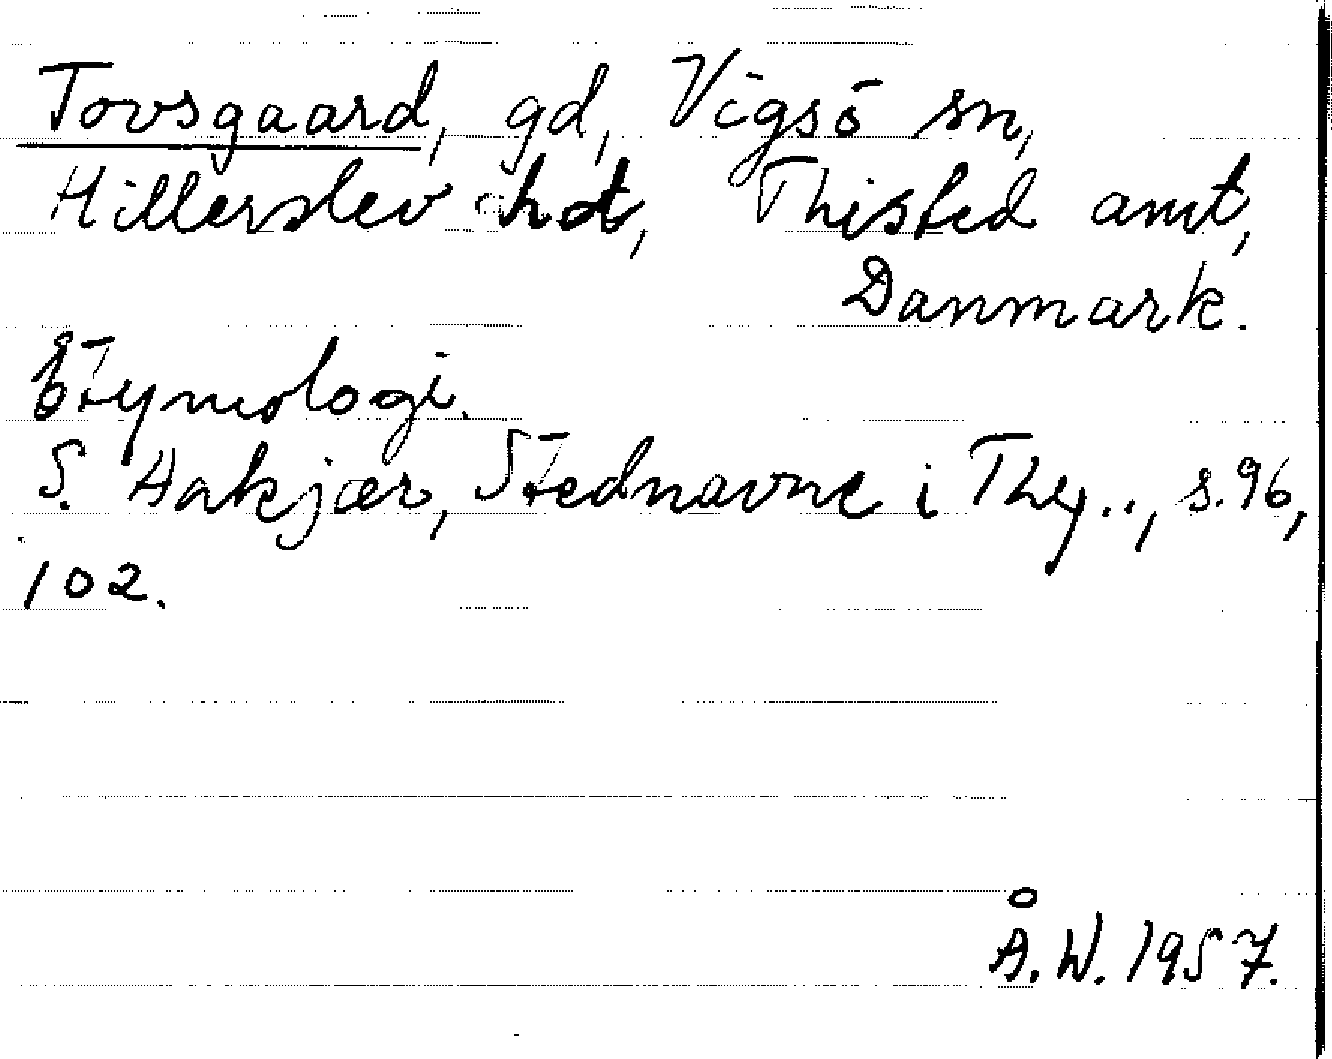 Tovsgaard, gd, Vigsö sn,
Hillerslev hd, Thisted amt,
Danmark.
Etymologi.
S. Aakjær, Stednavne i Thy.., s.96,
102.
Å.W. 1957.